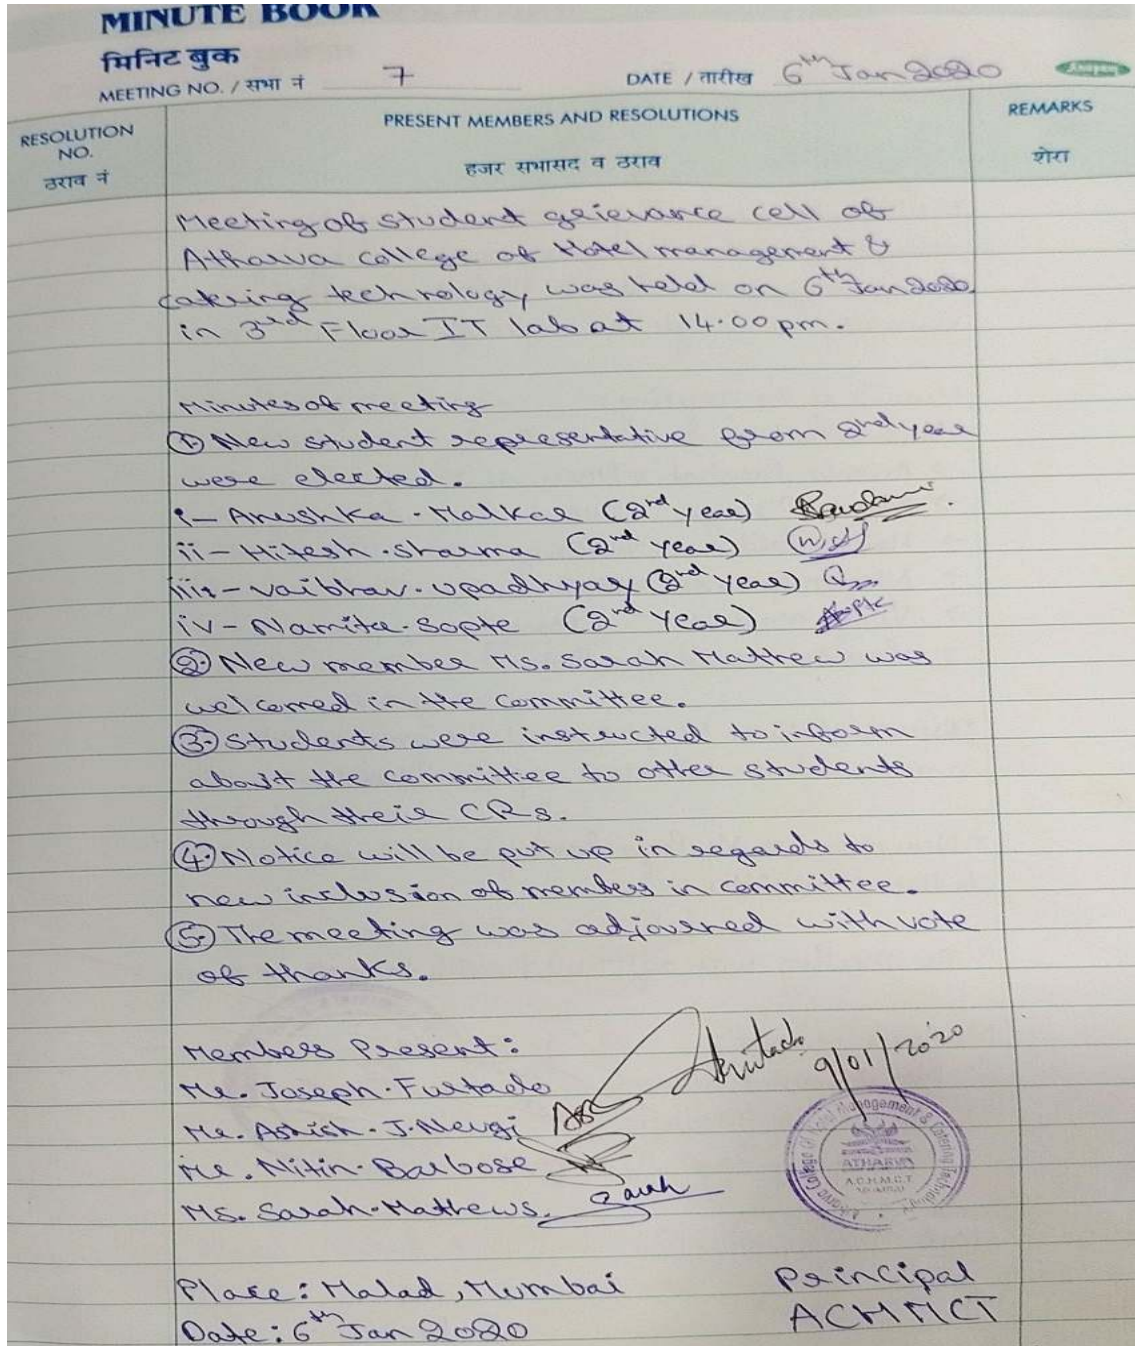 MINUTE BOOK
मिनिट बुक
MEETING NO. / सभा नं 7 DATE / तारीख 6th Jan 2020
RESOLUTION NO. ठराव नं
PRESENT MEMBERS AND RESOLUTIONS
हजर सभासद व ठराव
REMARKS
शेरा
Meeting of student grievance cell of
Atharva college of Hotel management &
catering technology was held on 6th Jan 2020
in 3rd Floor IT lab at 14.00 pm.
Minutes of meeting
① New student representative from 2nd year
were elected.
i- Anushka. Malkar (2nd year)
ii- Hitesh. sharma (2nd year)
iii- vaibhav. upadhyay (2nd year)
iv- Namita. Sapte (2nd Year)
②. New member Ms. Sarah Mathew was
welcomed in the committee.
③. Students were instructed to inform
about the committee to other students
through their CRs.
④. Notice will be put up in regards to
new inclusion of members in committee.
⑤. The meeting was adjourned with vote
of thanks.
Members Present:
Mr. Joseph. Furtado
Mr. Ashish. J. Nevgi
Mr. Nitin. Barbose
Ms. Sarah. Mathews. Sarah
9/01/2020
Atharva College Of Hotel Management & Catering Technology
ATHARVA
A.C.H.M.C.T
MUMBAI
Place: Malad, Mumbai
Date: 6th Jan 2020
Principal
ACHMCT